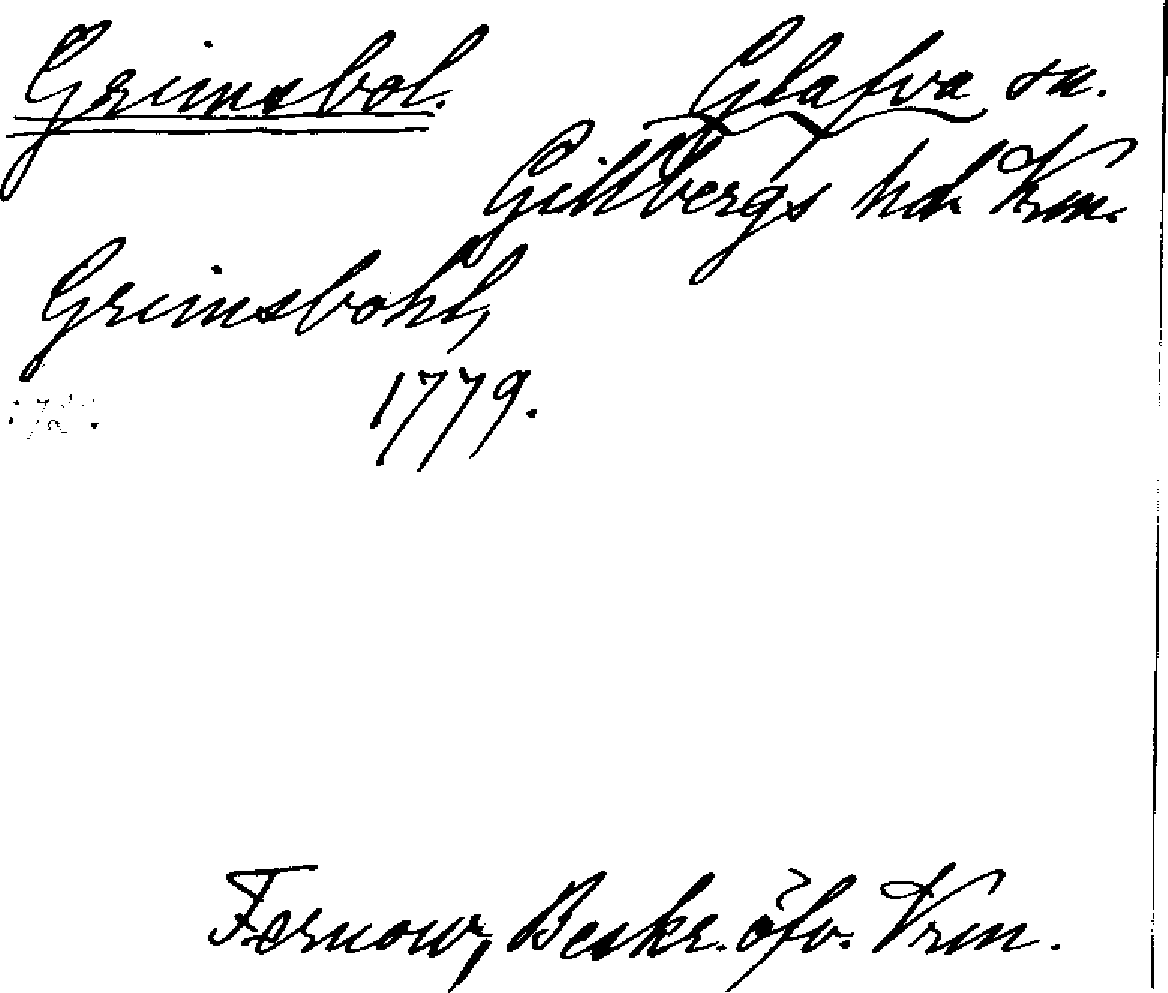 Grimsbol. Glafva sn.
Gillbergs hd Vrm.
Grimsbohl,
1779.
Fernow, Beskr. öfv. Vrm.